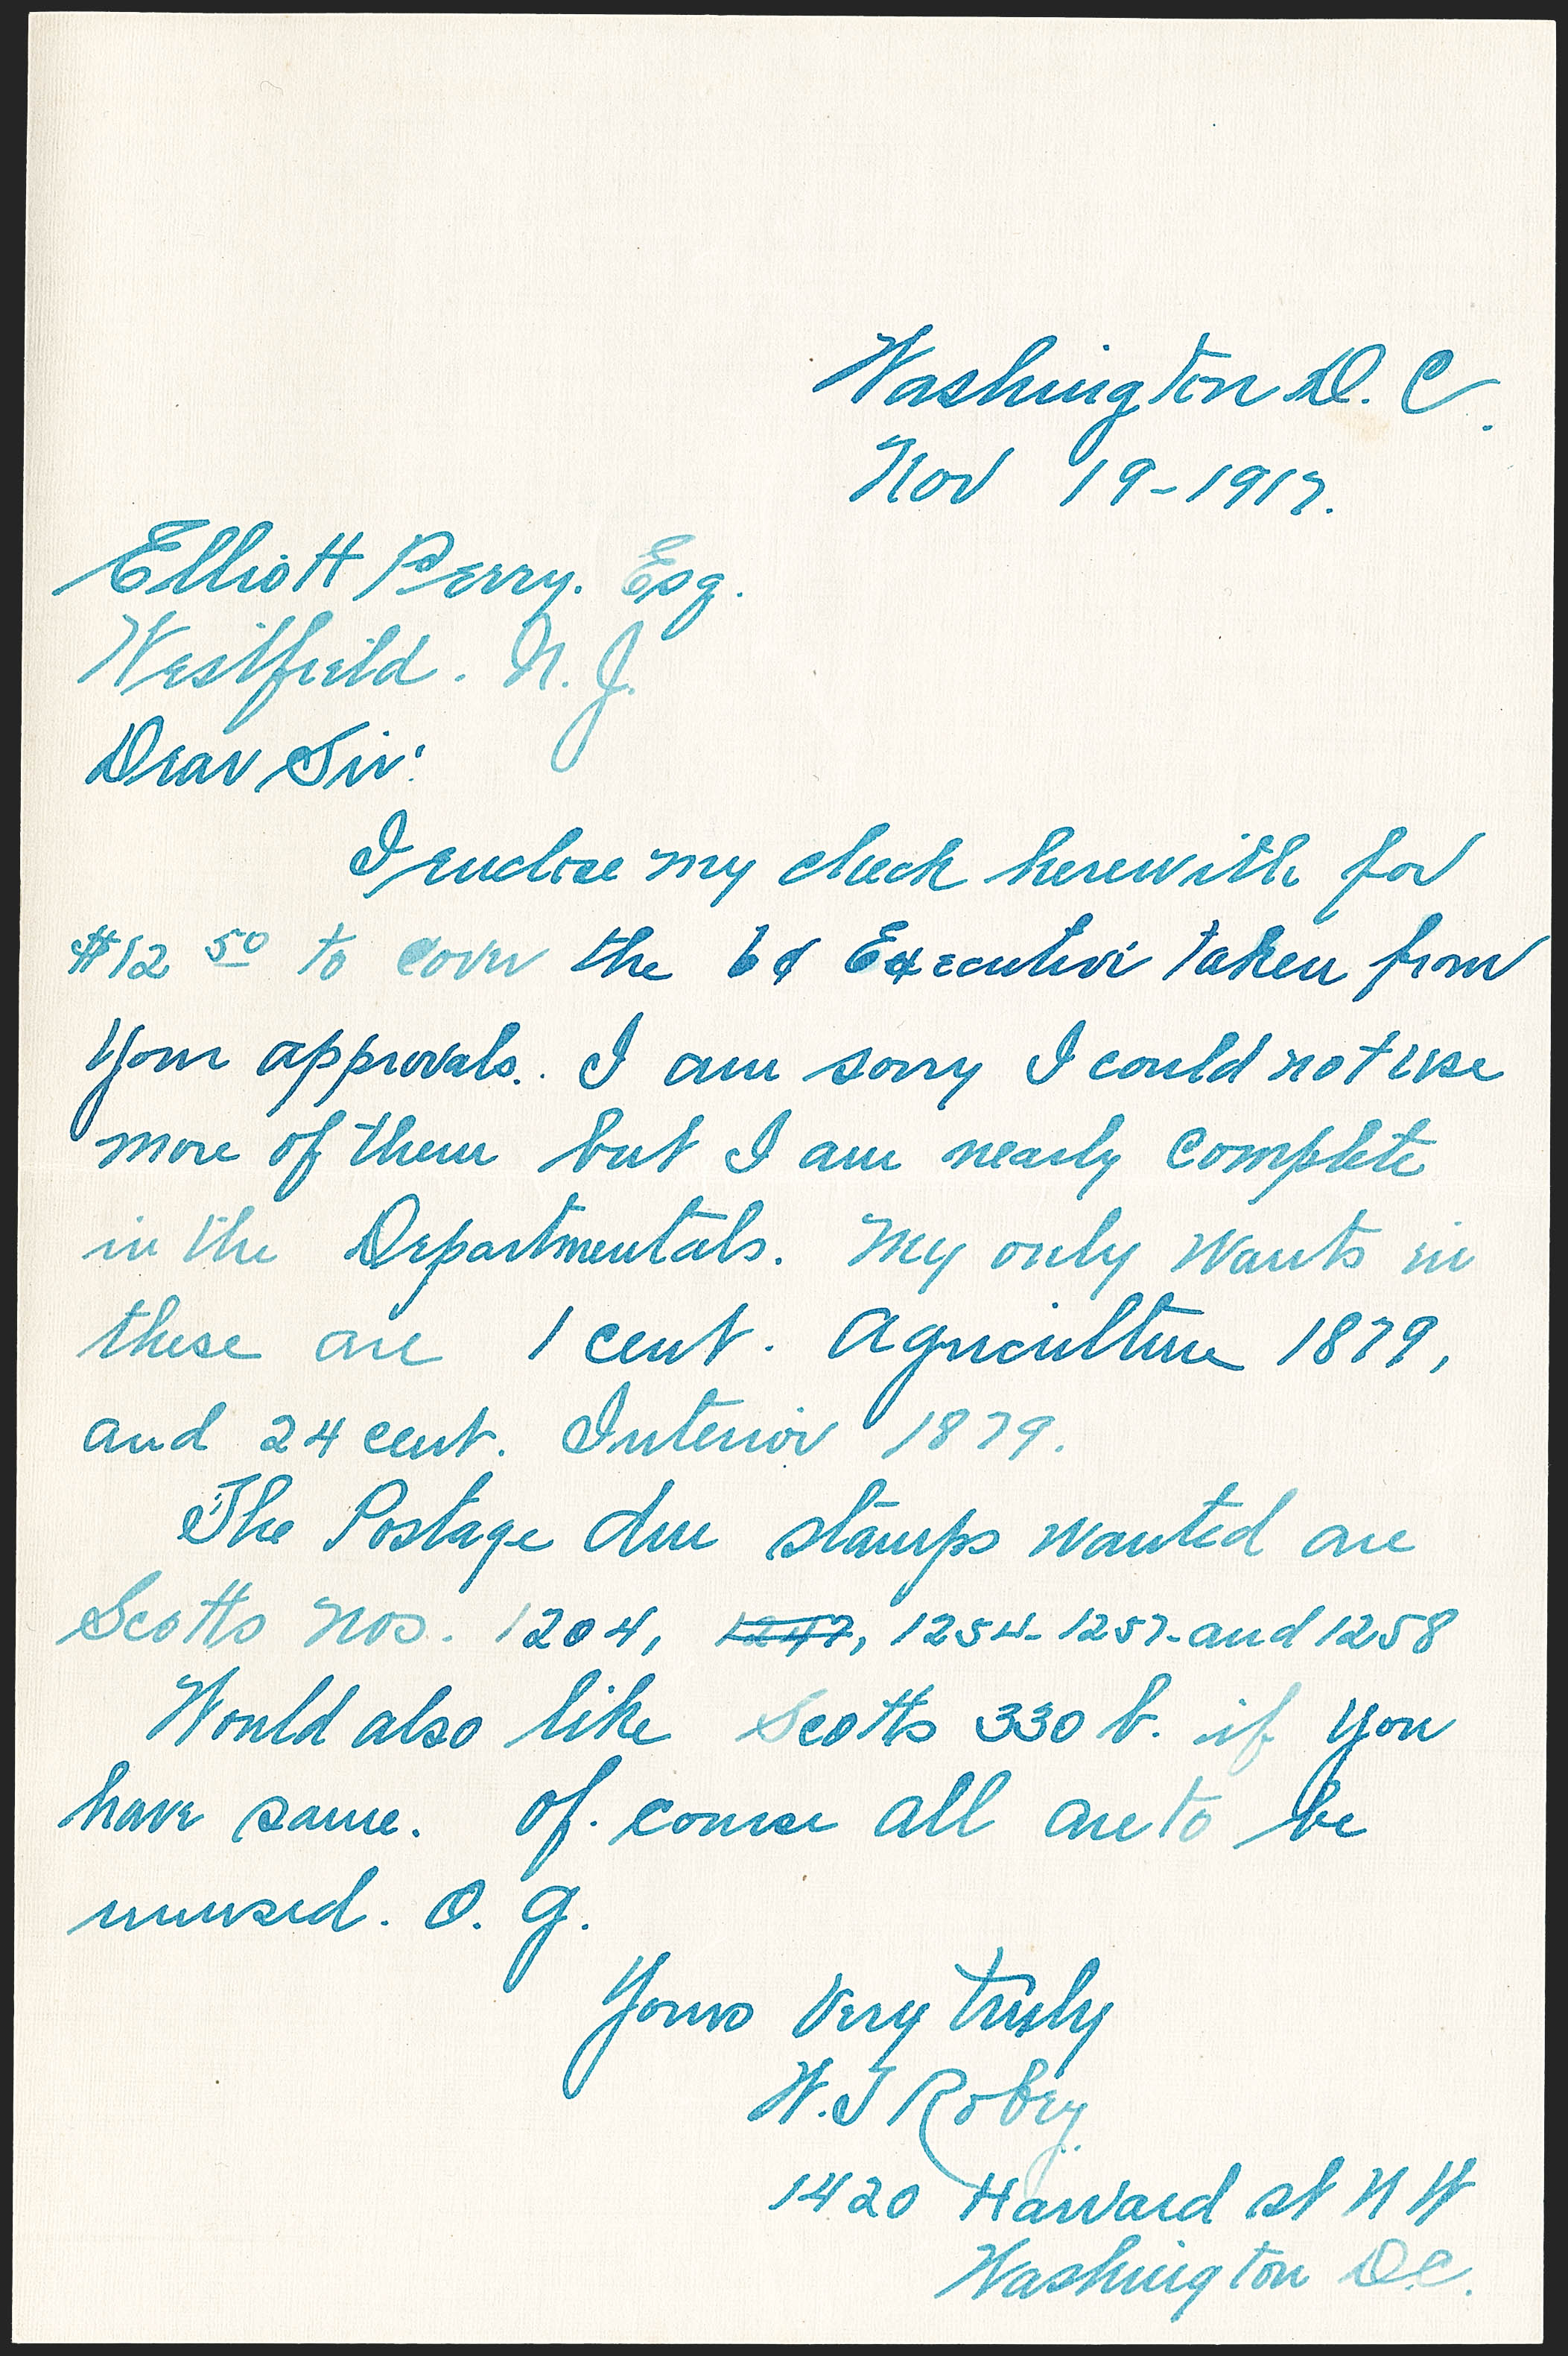 Washington D. C.
Nov 19-1917.
Elliott Perry. Esq.
Westfield. N. J.
Dear Sir:
I enclose my check herewith for
$12 50 to cover the 6¢ Executive taken from
your approvals. I am sorry I could not use
more of them but I am nearly complete
in the Departmentals. My only wants in
these are 1 cent. Agriculture 1879,
and 24 cent. Interior 1879.
The Postage due stamps wanted are
Scotts Nos. 1204, 1254-1257-and 1258
Would also like Scotts 330 b. if you
have same. Of. course all are to be
unused. O. G.
Yours Very truly
W. T Robey
1420 Harvard st N W
Washington D.C.